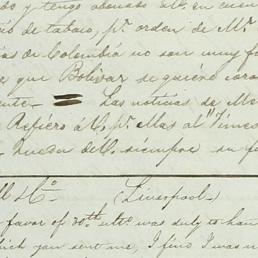 do y tengo abonado á U. en cuen
io de tabaco, pr. orden de Mr.
ias de Colombia no son muy f
es que Bolivar se quiere coro
ente. = Las noticias de Me
Refiero á U. pr. ellas al "Times
queda de U. siempre su
ll 4o. (Liverpool.)
favor of 30th. ulto. was duly to han
hich you sent me, I find I was n